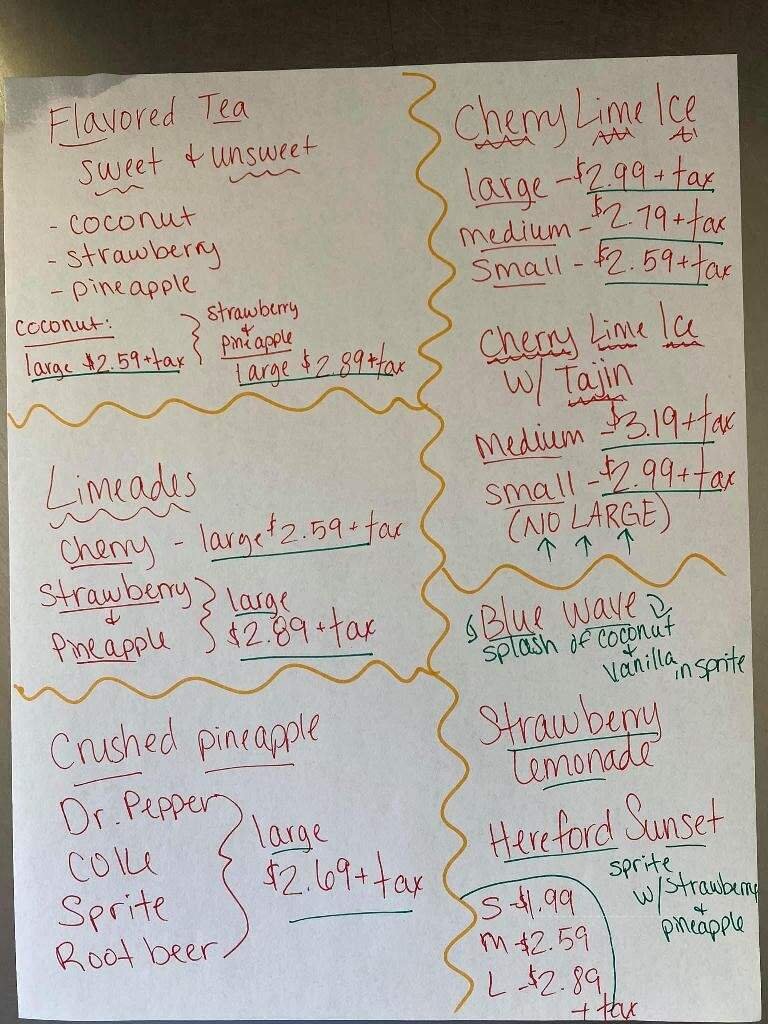 Flavored Tea
sweet & unsweet
- coconut
- strawberry
- pineapple
coconut:
large $2.59+tax
strawberry
&
pineapple
large $2.89+tax
Limeades
Cherry - large $2.59+tax
Strawberry
&
Pineapple
large
$2.89+tax
Crushed pineapple
Dr. Pepper
Coke
Sprite
Root beer
large
$2.69+tax
Cherry Lime Ice
large - $2.99+tax
medium - $2.79+tax
small - $2.59+tax
Cherry Lime Ice
w/ Tajin
medium - $3.19+tax
small - $2.99+tax
(NO LARGE)
↑ ↑ ↑
Blue Wave
splash of coconut
&
vanilla in sprite
Strawberry
Lemonade
Hereford Sunset
sprite
w/ strawberry
&
pineapple
S - $1.99
M - $2.59
L - $2.89
+ tax